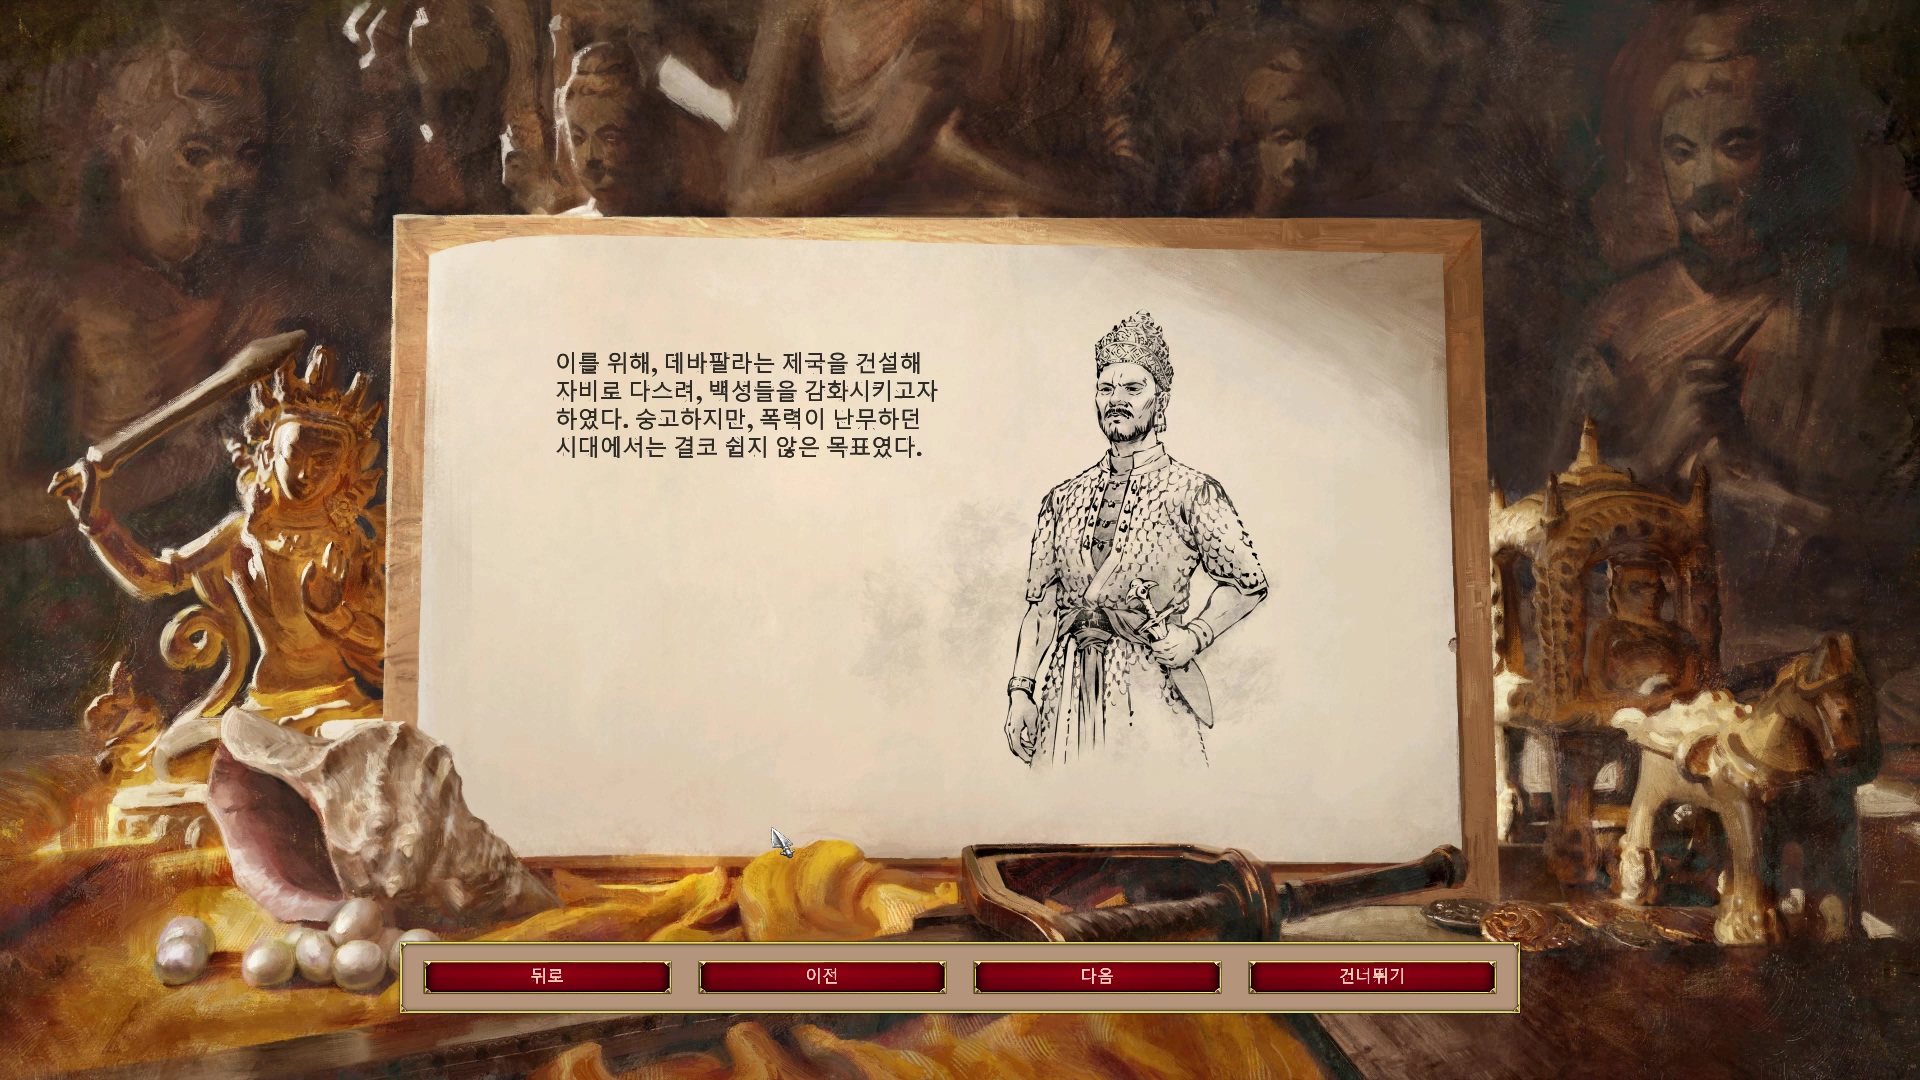 이를 위해, 데바팔라는 제국을 건설해
자비로 다스려, 백성들을 감화시키고자
하였다. 숭고하지만, 폭력이 난무하던
시대에서는 결코 쉽지 않은 목표였다.
뒤로
이전
다음
건너뛰기